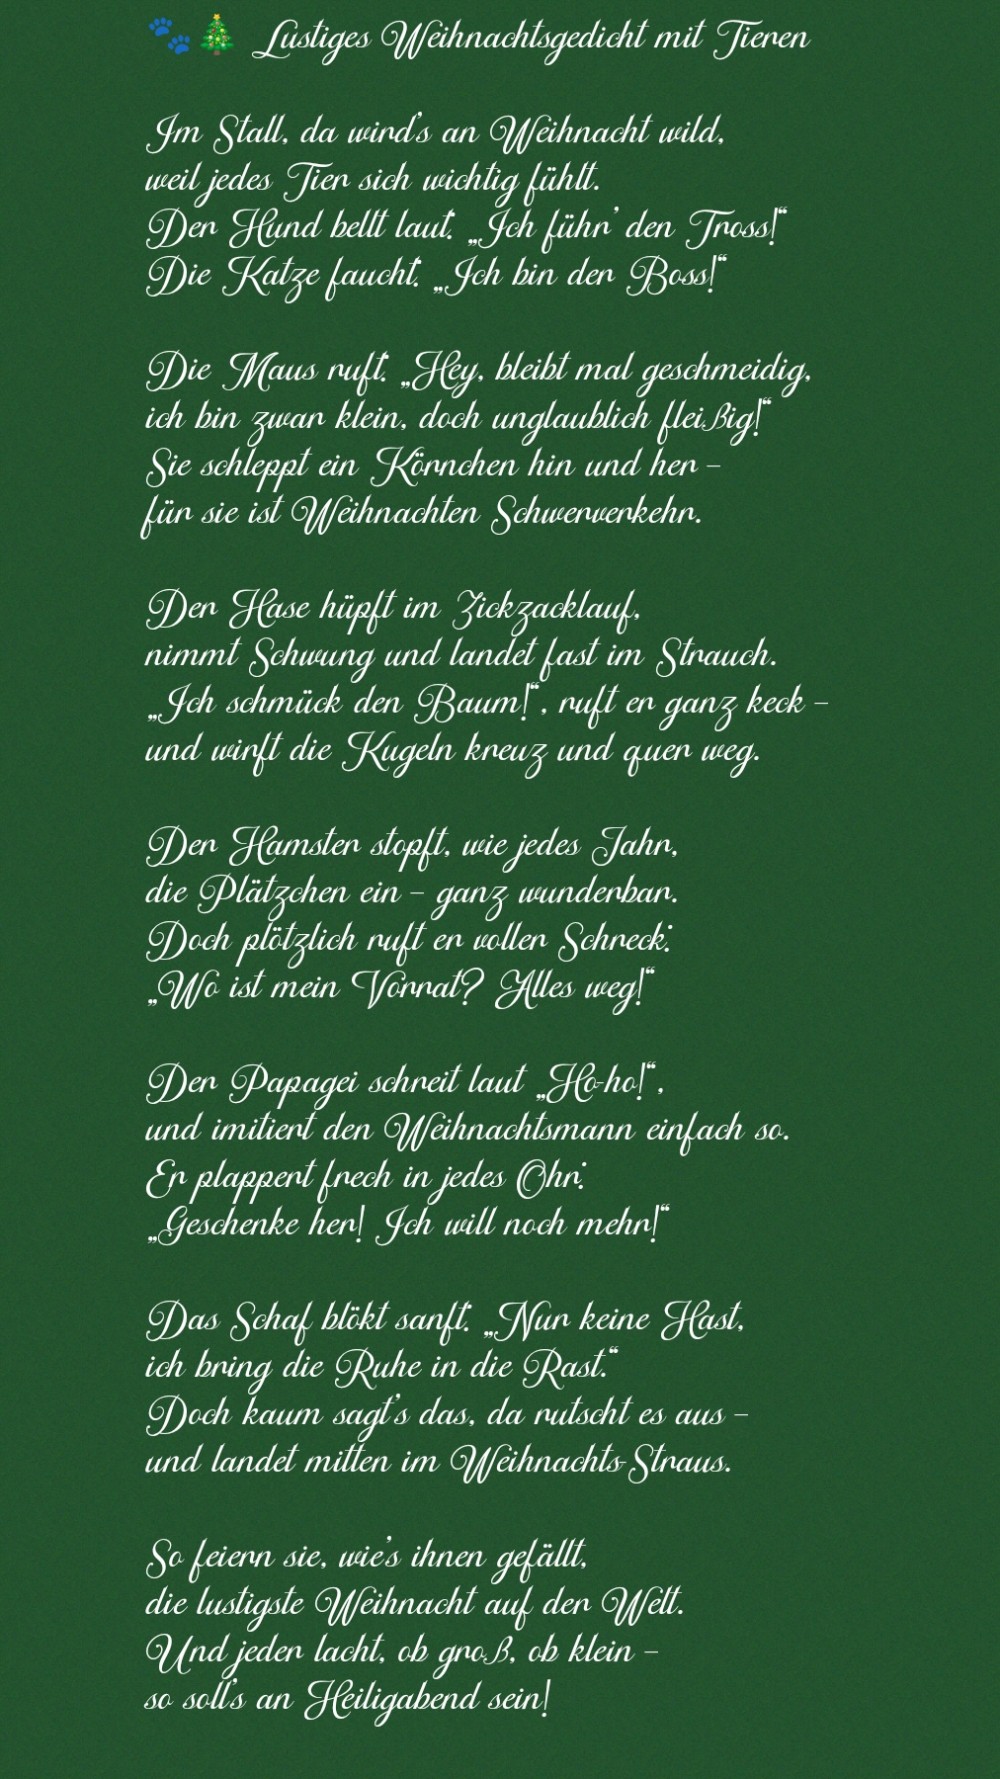 🐾🎄 Lustiges Weihnachtsgedicht mit Tieren
Im Stall, da wird's an Weihnacht wild,
weil jedes Tier sich wichtig fühlt.
Der Hund bellt laut: „Ich führ' den Tross!“
Die Katze faucht: „Ich bin der Boss!“
Die Maus ruft: „Hey, bleibt mal geschmeidig,
ich bin zwar klein, doch unglaublich fleißig!“
Sie schleppt ein Körnchen hin und her –
für sie ist Weihnachten Schwerverkehr.
Der Hase hüpft im Zickzacklauf,
nimmt Schwung und landet fast im Strauch.
„Ich schmück den Baum!“, ruft er ganz keck –
und wirft die Kugeln kreuz und quer weg.
Der Hamster stopft, wie jedes Jahr,
die Plätzchen ein – ganz wunderbar.
Doch plötzlich ruft er voller Schreck:
„Wo ist mein Vorrat? Alles weg!“
Der Papagei schreit laut „Ho-ho!“,
und imitiert den Weihnachtsmann einfach so.
Er plappert frech in jedes Ohr:
„Geschenke her! Ich will noch mehr!“
Das Schaf blökt sanft: „Nur keine Hast,
ich bring die Ruhe in die Rast.“
Doch kaum sagt's das, da rutscht es aus –
und landet mitten im Weihnachts-Straus.
So feiern sie, wie's ihnen gefällt,
die lustigste Weihnacht auf der Welt.
Und jeder lacht, ob groß, ob klein –
so soll's an Heiligabend sein!